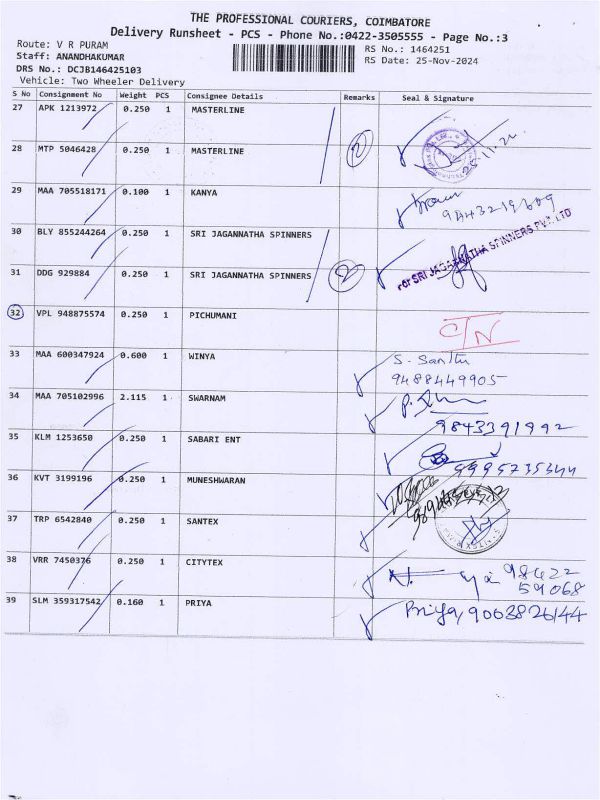 THE PROFESSIONAL COURIERS, COIMBATORE
Delivery Runsheet - PCS - Phone No.:0422-3505555 - Page No.:3
Route: V R PURAM
RS No.: 1464251
Staff: ANANDHAKUMAR
RS Date: 25-Nov-2024
DRS No.: DCJB146425103
Vehicle: Two Wheeler Delivery
S No Consignment No Weight PCS Consignee Details Remarks Seal & Signature
27 APK 1213972 0.250 1 MASTERLINE
28 MTP 5046428 0.250 1 MASTERLINE 2 25.11.24
29 MAA 705518171 0.100 1 KANYA
9443219609
30 BLY 855244264 0.250 1 SRI JAGANNATHA SPINNERS
For SRI JAGANNATHA SPINNERS PVT. LTD
31 DDG 929884 0.250 1 SRI JAGANNATHA SPINNERS 2
32 VPL 948875574 0.250 1 PICHUMANI C/N
33 MAA 600347924 0.600 1 WINYA S. Santhi
9488449905
34 MAA 705102996 2.115 1 SWARNAM
9843391992
35 KLM 1253650 0.250 1 SABARI ENT
9995735344
36 KVT 3199196 0.250 1 MUNESHWARAN
37 TRP 6542840 0.250 1 SANTEX
38 VRR 7450376 0.250 1 CITYTEX 98422
59068
39 SLM 359317542 0.160 1 PRIYA Priya, 9003826144